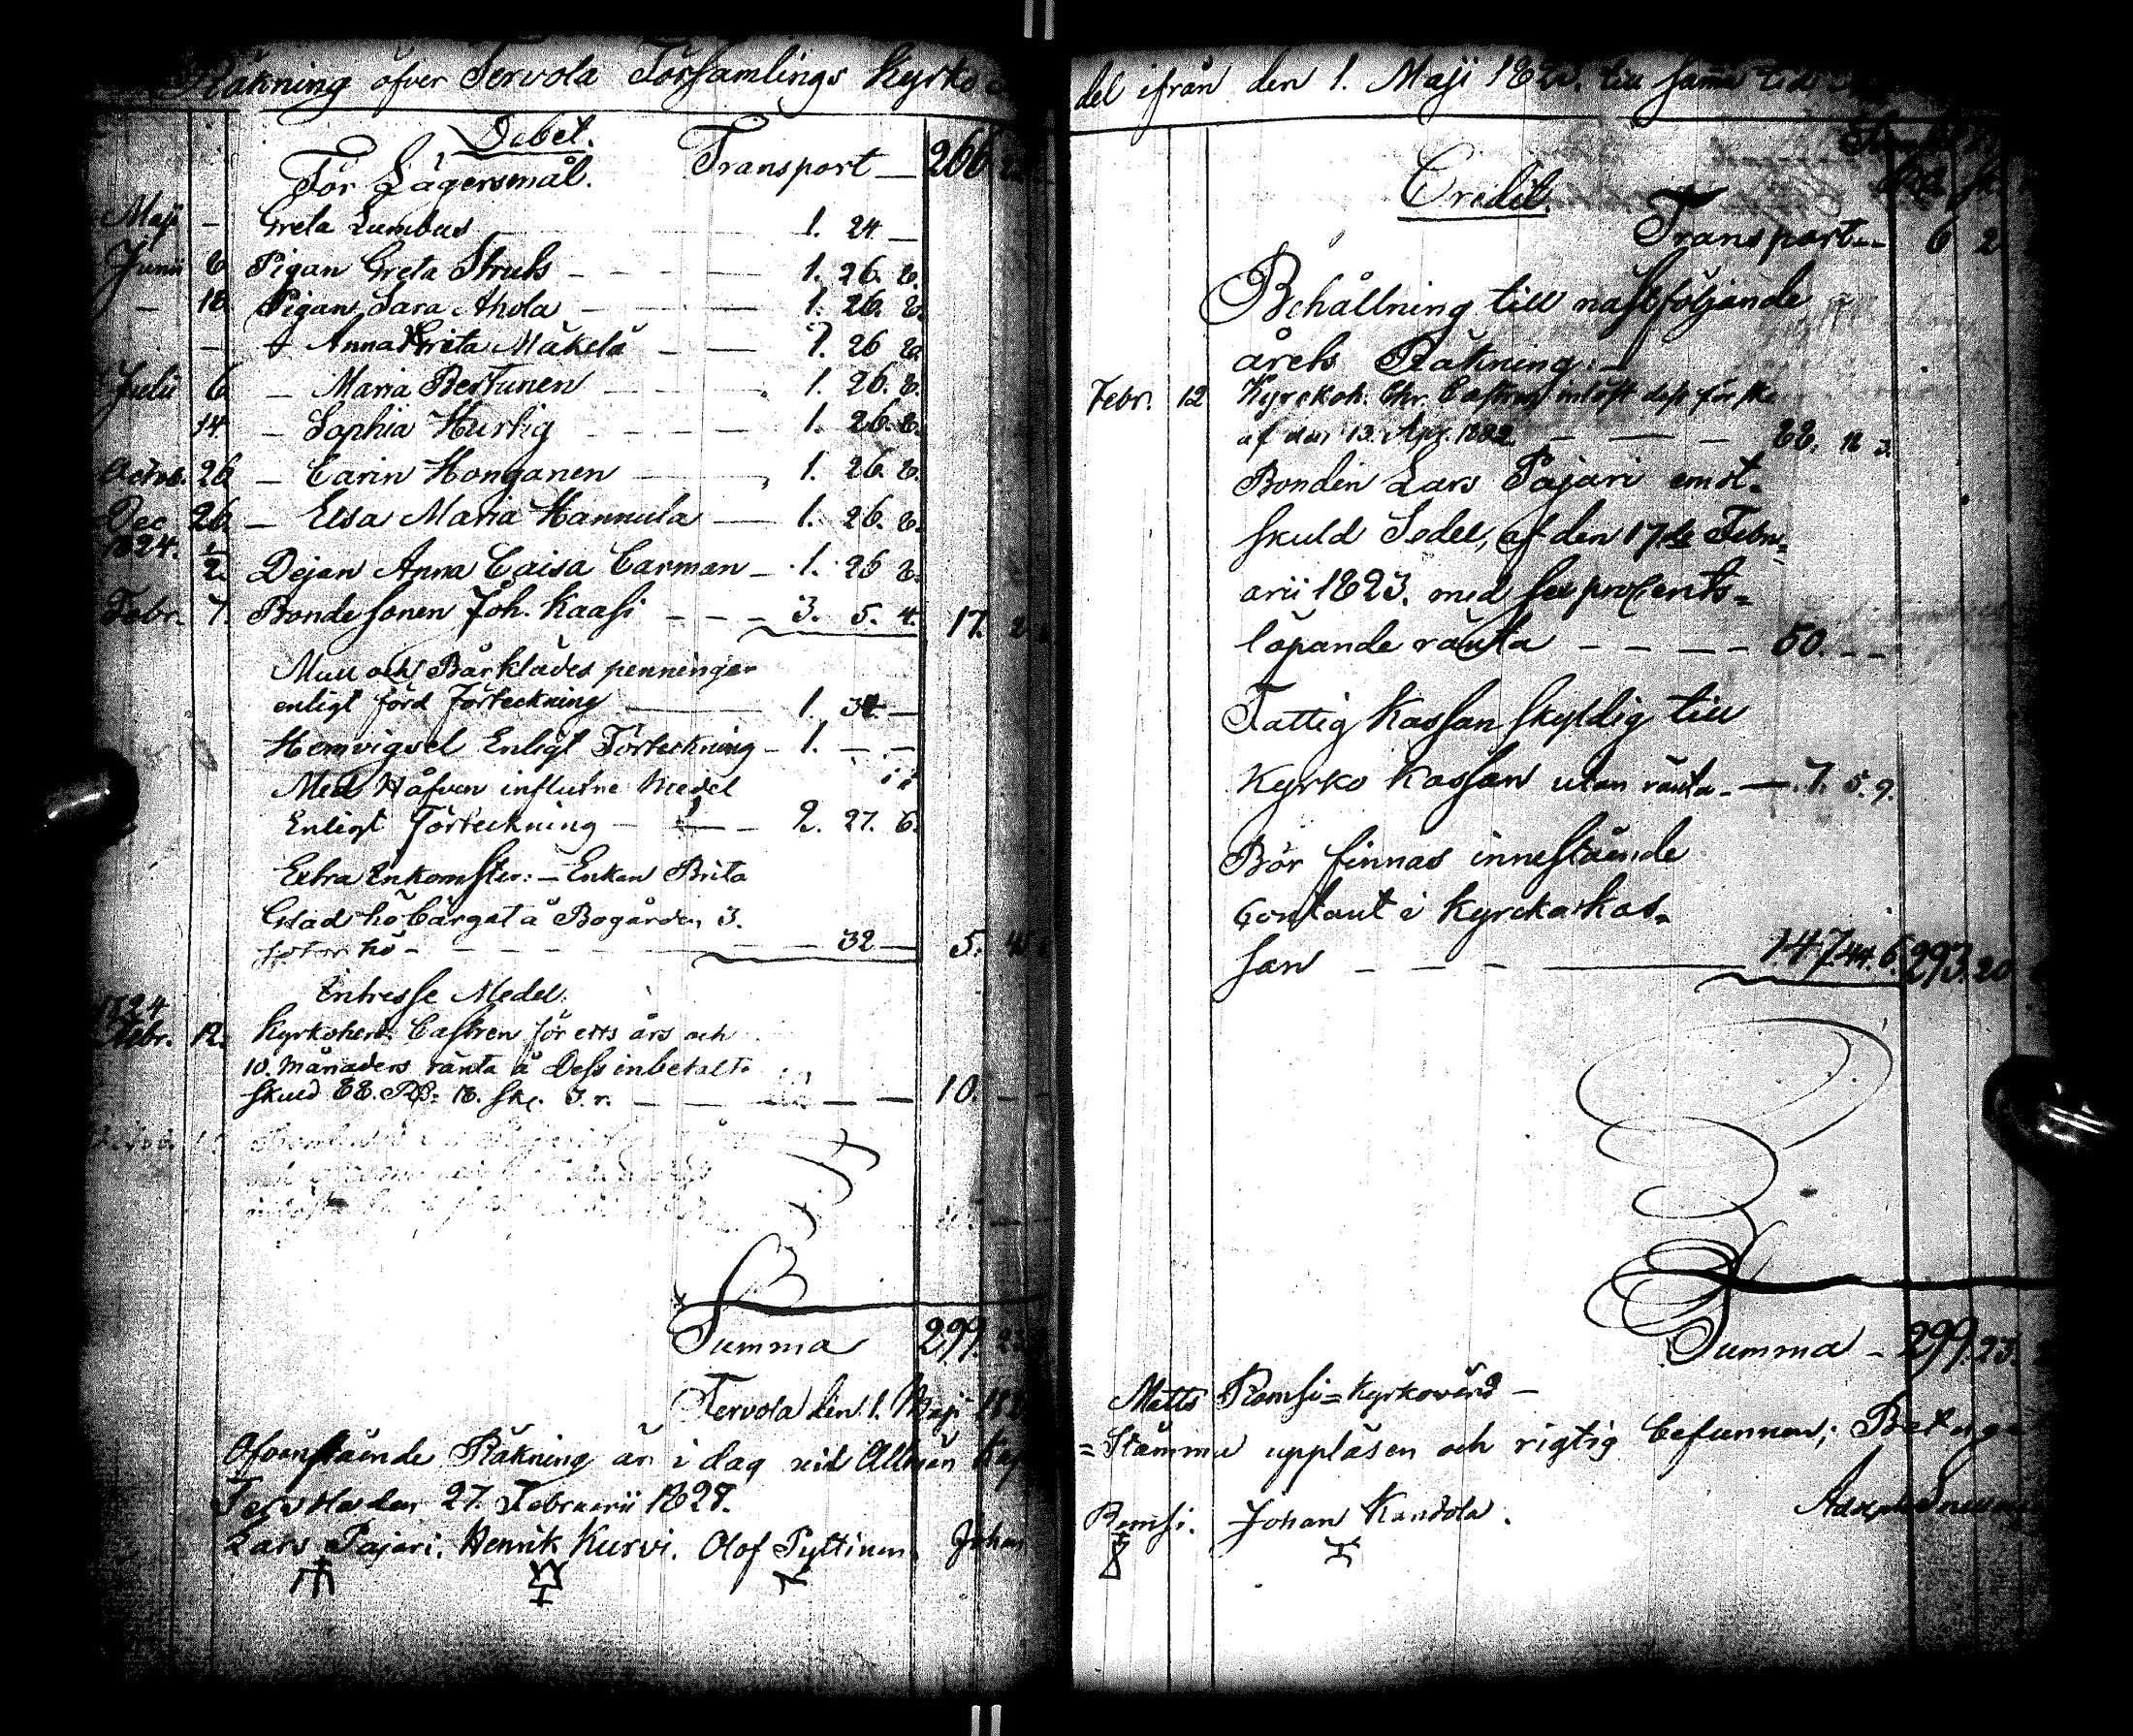 Räkning öfver Tervola Församlings Kyrko
Debet.
För Lägersmål. Transport — 266
Maji — Greta Lumbus — 1. 24 —
Junii 8 Pigan Greta Struks — 1. 26. 8.
— 18. Pigan Sara Ahola — 1. 26. 8.
— Anna Greta Mäkelä — 1. 26 8.
Julii 6 — Maria Bertunen — 1. 26. 8.
14. — Sophia Hurtig — 1. 26. 8.
Octob. 26 — Carin Honganen — 1. 26. 8.
Dec. 26. — Elsa Maria Hannula — 1. 26. 8.
1824.
2. Dejan Anna Caisa Carman — 1. 26 8.
Febr. 7. Bondesonen Joh. Kaasi — 3. 5. 4. 17.
Mull och Bårklädes penningar
enligt förd Förteckning — 1. —
Hemvigsel Enligt Förteckning — 1. — —
Med Håfven influtne Medel
Enligt Förteckning — 2. 27. 6.
Extra Inkomster: — Enkan Brita
hö bärgat å Bogården 3.
hö — 32 — 5.
Intresse Medel.
1824
Febr. 12. Kyrkoherd. Castren för etts års och
10. Månaders ränta å Dess inbetalte
Skuld 88. RD. 18. sk. 3. r. — 10. — —
Summa 299.
Tervola den 1. Maji
Ofvanstående Räkning är i dag vid Allmän
Tervola den 27. Februarii 1827.
Lars Pajari. Henrik Kurvi. Olof Pyttinen. Johan
del ifrån den 1. Maji till samma tid
Credit.
Transport — 6 2
Behållning till nästföljande
årets Räkning: —
Febr. 12 Kyrckoh. Chr. Castren inlöst dess för sk
af den 13. Apr. 1822 — 88. 18 3.
Bonden Lars Pajari emot
skuld Sedel, af den 17de Febru=
arii 1823. med sex procents=
löpande ränta — — — — 50. — —
Fattig Kassan skyldig till
Kyrko Kassan utan ränta — 7. 5. 9.
Bör finnas innestående
Contant i Kyrcko kas=
san — — — 147. 44. 6. 293. 20
Summa — 299. 23.
Matts Romsi = Kyrkovärd —
= Stämma uppläsen och rigtig befunnen; Betyga
Romsi. Johan Kandola.